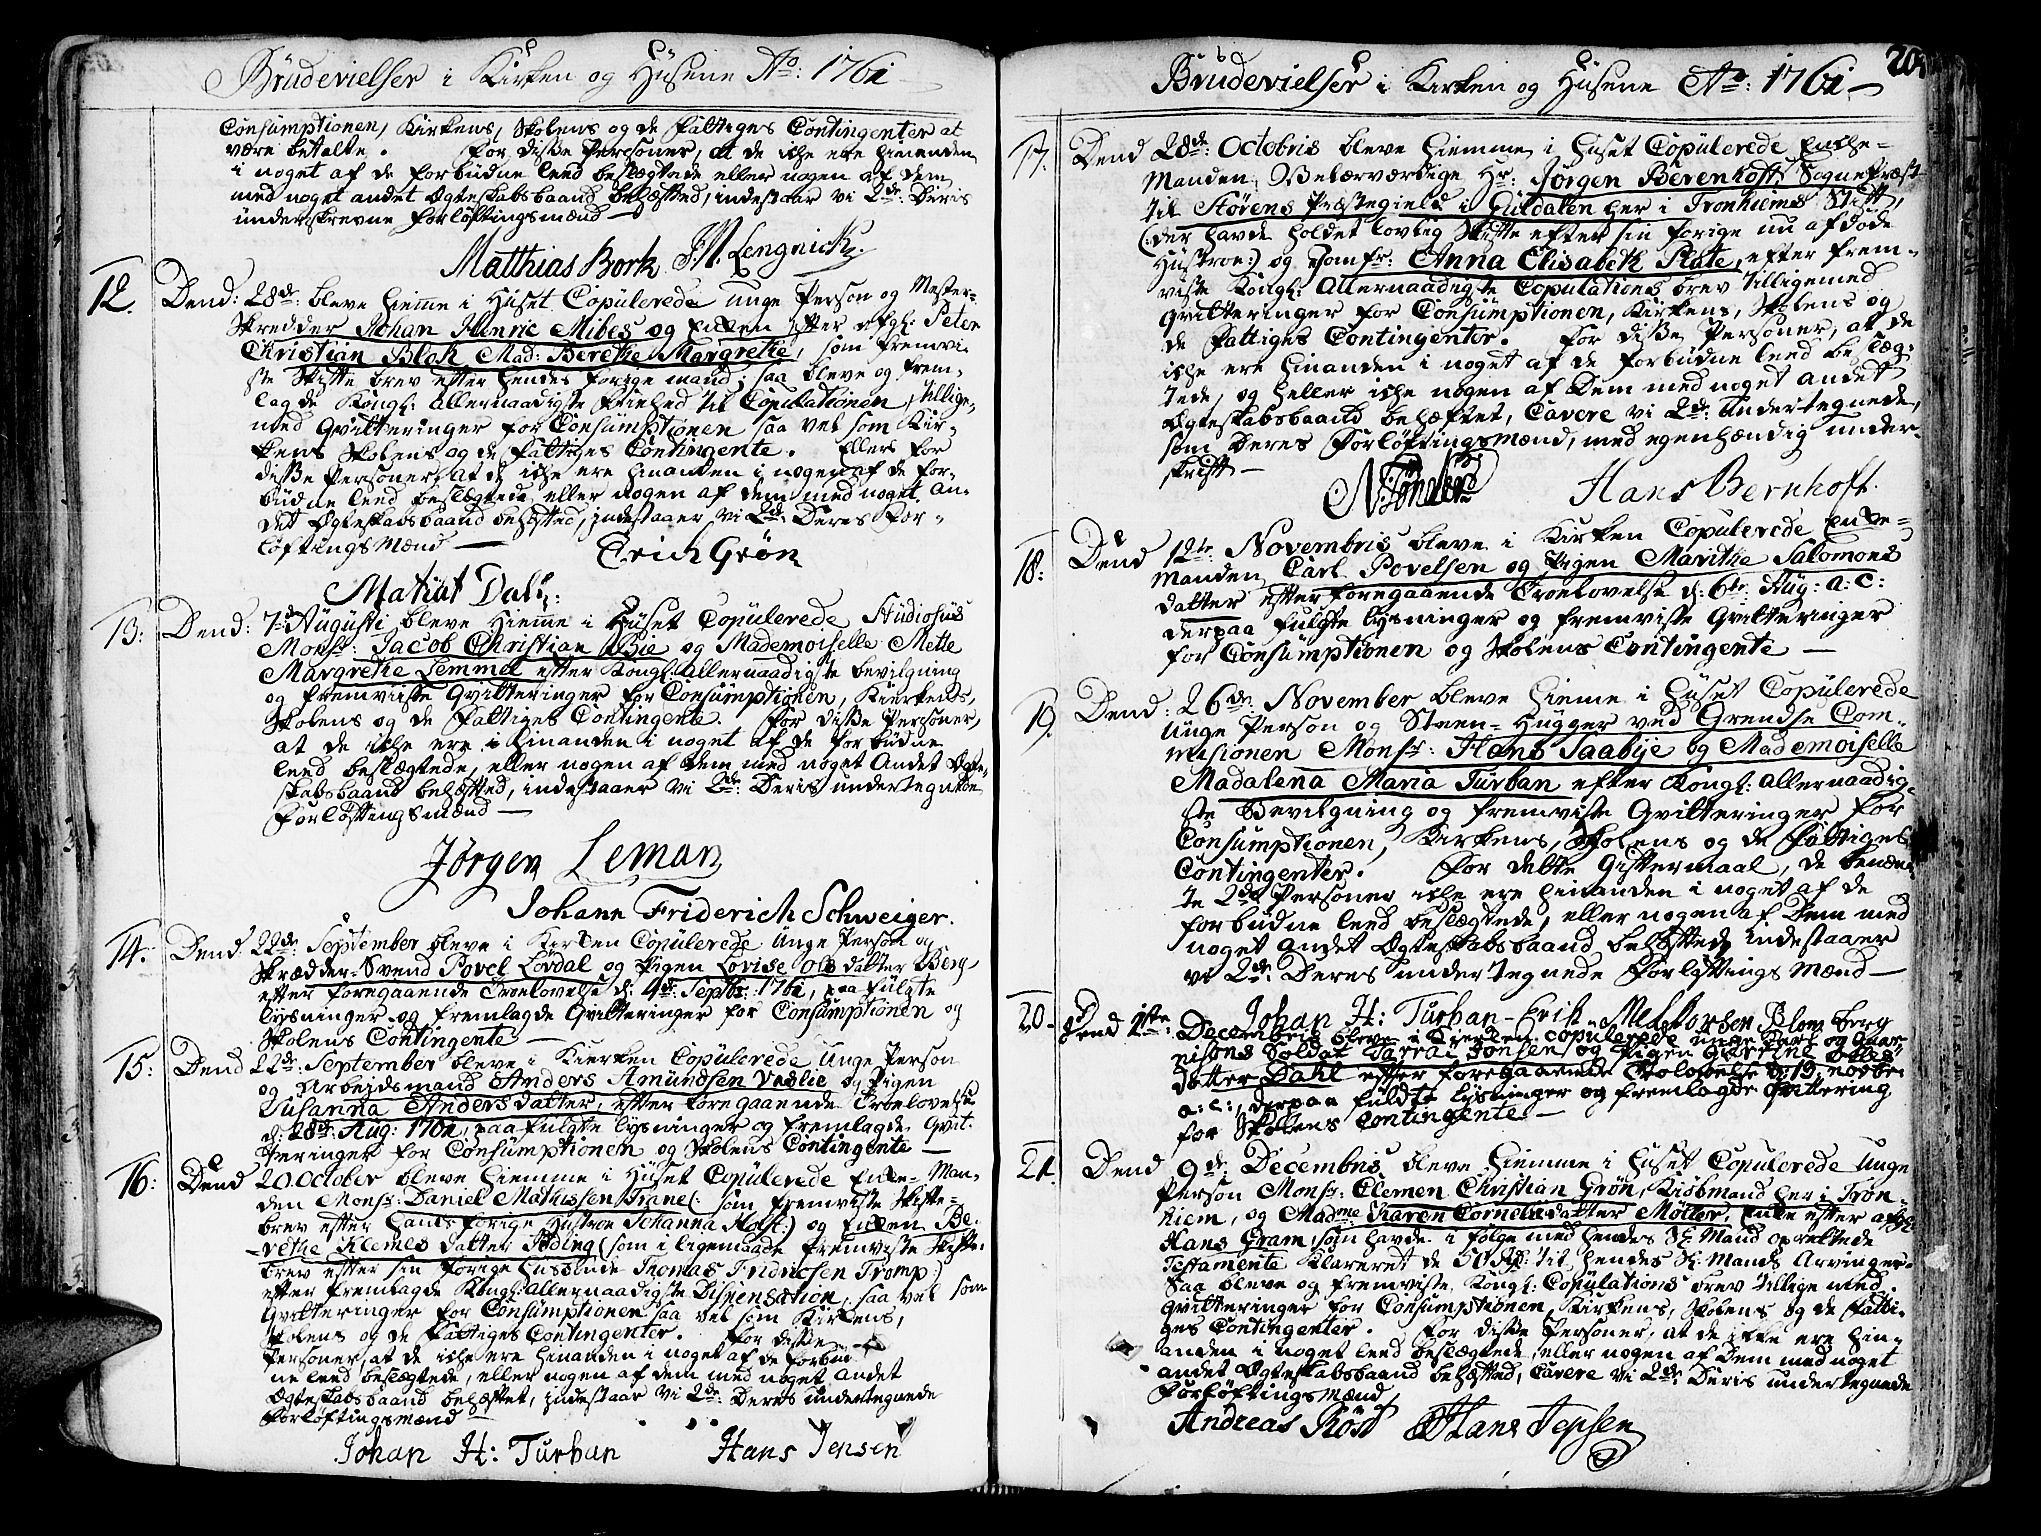 Brudevielser i Kirken og Husene Ao: 1761
Consumptionen, Kirkens, Skolens og de Fattiges Contingenter at
være betalte. For disse Personer, at de iche ere hinanden
i noget af de forbudne leed beslægtede eller nogen af dem
med noget andet Ægteskabsbaand behæfted, indestaar vi 2de: Deris
underskrevne Forløftingsmænd
Matthias Bork J. M. Lengnick
12. Dend: 28de: bleve hiemme i Huset Copulerede unge Person og Mester-
Skredder Johan Henric Mibes og Enken efter afgl: Peter
Christian Blok Mad: Berethe Margrethe, som fremvi-
ste Skifte brev efter hendes forige mand, saa bleve og frem-
lagde Kongl: allernaadigste Friehed til Copulationen, tillige-
med Qvitteringer for Consumptionen saa vel som Kir-
kens Skolens og de Fattiges Contingente. Ellers for
disse Personer, at de iche ere hinanden i nogen af de for-
budne leed beslegtede, eller nogen af dem med noget an-
det Ægteskabsbaand behæfted, indestaaer vi 2de: Deres For-
løftings Mænd
Erich Grøn
Mathias Dali:
13: Dend: 7de Augusti bleve hiemme i Huset Copulerede Studiosus
Mons: Jacob Christian Bie og Mademoiselle Mette
Margrethe Lemmel efter Kongl: allernaadigste bevilgning
og fremviiste Qvitteringer for Consumptionen, Kirkens,
Skolens og de Fattiges Contingente. For disse Personer,
at de iche ere i hinanden i noget af de forbudne
leed beslægtede, eller nogen af dem med noget Andet Ægte-
skabsbaand behæfted, indestaaer vi 2de: Deris undertegnede
Forløftingsmænd
Jørgen Leman
Johann Friderich Schweiger.
14. Dend: 22de: September bleve i Kirken Copulerede unge Person og
Skrædder-Svend Povel Lovdal og Pigen Lovise Ols datter Berg
efter foregaaende Troelovelse d: 4de: Septbr: 1761, paa fulgte
lysninger og fremlagde Qvitteringer for Consumptionen og
Skolens Contingente
15: Dend 22de: September bleve i Kierken Copulerede Unge Person
og Arbeidsmand Anders Amundsen Vedlie og Pigen
Susanna Anders datter, efter foregaaende Troelovelse
d: 28de: Aug: 1761, paa fulgte lysninger og fremlagde Qvit-
teringer for Consumptionen og Skolens Contingente
16: Dend 20 October bleve hiemme i Huset Copulerede Enke-Man-
den Monsr: Daniel Mathissen Trane (: som fremviste Skifte-
brev efter hans forige Hustroe Johanna Mast:) og Enken Be-
rethe Klemes datter Siding (som i ligemaade fremviste skifte-
brev efter sin forige Husbonde Thomas Fridrichsen Tromp:)
efter fremlagde Kongl: allernaadigste Dispensation, saa vel som
Qvitteringer for Consumptionen saa vel som Kirkens,
Skolens og de Fattiges Contingenter. For disse
Personer, at de iche ere hinanden i noget af de forbud-
ne leed beslegtede, eller nogen af dem med noget andet
Ægteskabsbaand behæftet, indestaar vi 2de: Deres undertegnede
Forløftingsmænd
Johan H: Turban Hans Jensen
Brudevielser i Kirken og Husene Ao: 1761
17. Dend 28de: Octobris bleve hiemme i Huset Copulerede Enche-
Manden, Velærværdige Hr: Jørgen Berenhoft, Sognepræst
til Størens Præstegield i Guldalen her i Tronhiems Stift,
(: der havde holdet lovlig skifte efter sin forige nu afdøde
Hustroe:) og Jomfr: Anna Elisabeth Plate, efter frem-
viste Kongl: Allernaadigste Copulations brev tilligemed
Qvitteringer for Consumptionen, Kirkens, Skolens og
de Fattiges Contingenter. For disse Personer, at de
iche ere hinanden i noget af de forbudne leed beslæg-
tede, og heller iche nogen af Dem med noget andet
Ægteskabsbaand behæftet, Cavere vi 2de: Undertegnede,
som Deres Forløftingsmænd, med egenhændig under-
skrift
Hans Bernhoft.
18: Dend 12te: Novembris bleve i Kirken Copulerede Enke-
manden Carl Povelsen og Pigen Marithe Salomons
datter efter foregaaende Troelovelse d: 6te Aug: a: c:
derpaa fulgte lysninger og fremviste Qvitteringer
for Consumptionen og Skolens Contingente
19. Dend: 26de: November bleve hiemme i Huset Copulerede
Unge Person og Steen-Hugger ved Grendse Com-
misionen Monsr: Hans Saabye og Mademoiselle
Madalena Maria Turban efter Kongl: allernaadig-
ste Bevilgning og fremviste Qvitteringer for
Consumptionen, Kirkens, Skolens og de Fattiges
Contingenter. For dette Giftermaal, de benævn-
te 2de Personer iche ere hinanden i noget af de
forbudne leed beslegtede, eller nogen af Dem med
noget andet Ægteskabsbaand behæftede indestaaer
vi 2de: Deres undertegnede Forløftings Mænd
Johan H: Turban - Erik Melkiorsen Blomberg
20. Dend 1ste: Decembris bleve i Kierken copulerede unge Karl og Guar-
nisons Soldat Tarral Jonsen og Pigen Gurine Olles
datter Dahl efter foregaaende Trolovelse d: 19. Novbr:
a: c:, derpaa fuldte lysninger og fremlagde Qvittering
for Skolens Contingente
21. Dend 9de: Decembris bleve hiemme i Huset Copulerede Unge
Person Monsr: Clemen Christian Grøn, Kiøbmand her i Tron-
hiem, og Madme Karen Cornelisdatter Møller, Enke efter afgl:
Hans Gram, som havde i følge med hendes Sl: Mand oprettede
Testamente Klareret de 50 Rd: til hendes Sl: Mands Arvinger.
Saa bleve og fremviste Kongl: Copulations brev tillige med
Qvitteringer for Consumptionen, Kirkens, Skolens og de Fatti-
ges Contingenter. For disse Personer, at de ikke ere hin-
anden i noget leed beslegtede, eller nogen af Dem med noget
andet Ægteskabsbaand behæfted, Cavere vi 2de: Deris undertegnede
Forløftingsmænd,
Andreas Røst Hans Jepsen